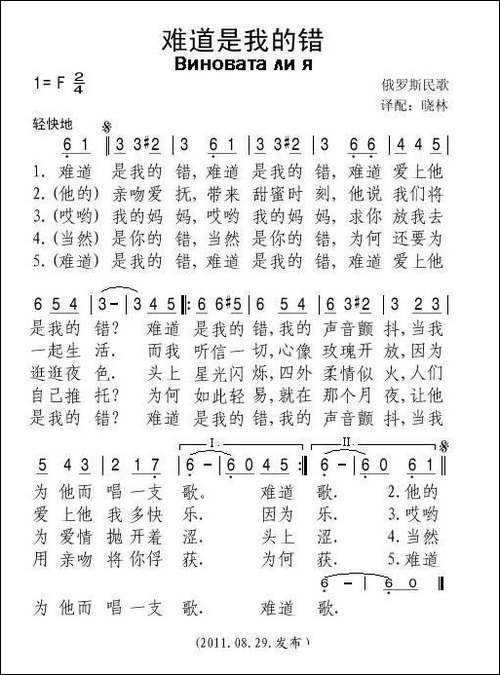 难道是我的错
Виновата ли я
1=F 2/4
俄罗斯民歌
译配：晓林
轻快地
6 1 | 3 3 #2 | 3 6 3 | 6 3 #2 | 3 6 6 | 5 4 3 | 3 2 3 |
1. 难道 是我的 错, 难道 是我的 错, 难道 爱上他
2. (他的) 亲吻爱 抚, 带来 甜蜜时 刻, 他说 我们将
3. (哎哟) 我的妈 妈, 哎哟 我的妈 妈, 求你 放我去
4. (当然) 是你的 错, 当然 是你的 错, 为何 还要为
5. (难道) 是我的 错, 难道 是我的 错, 难道 爱上他
6 5 4 | 3 - | 3 4 5 ‖: 6 6 #5 | 6 5 4 | 6 3 #2 | 3 2 3 |
是我的 错? 难道 是我的 错, 我的 声音颤 抖, 当我
一起生 活. 而我 听信一 切, 心像 玫瑰开 放, 因为
逛逛夜 色. 头上 星光闪 烁, 四外 柔情似 火, 人们
自己推 托? 为何 如此轻 易, 就在 那个月 夜, 让他
是我的 错? 难道 是我的 错, 我的 声音颤 抖, 当我
I. II.
5 4 3 | 2 1 7 | 6 - | 6 0 4 5 :‖ 6 - | 6 0 6 1 ‖
为 他而 唱一支 歌。 难道 歌. 2. 他的
爱 上他 我多快 乐. 因为 乐. 3. 哎哟
为 爱情 抛开着 涩. 头上 涩. 4. 当然
用 亲吻 将你俘 获. 为何 获. 5. 难道
6 - | 6 0 ‖
为 他而 唱一支 歌. 难道 歌.
(2011.08.29.发布)